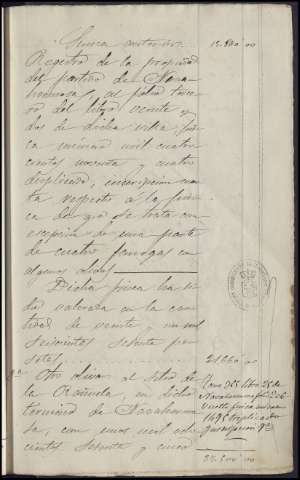 Suma anterior 15.800 00
Registro de la propiedad
del partido de Nava
hermosa, al folio trece
ro del libro veinte y
dos de dicha villa, fin
ca número mil cuatro
cientos noventa y cuatro
duplicado, inscripción cuar
ta respecto á la finca
de que se trata con
escepcion de una parte
de cuatro fanegas con
algunos olivos
Dicha finca ha si
do valorada en la can
tidad de veinte y un mil
seiscientos sesenta pe
setas 21.660 00
Otro olivar al sitio de
la Rañuela, en dicho
termino de Navahermo
sa, con unos mil do
cientos setenta y cinco
Tomo 365 libro 28 de
Navahermosa folio
finca número
1495 triplicado
inscripcion 9ª